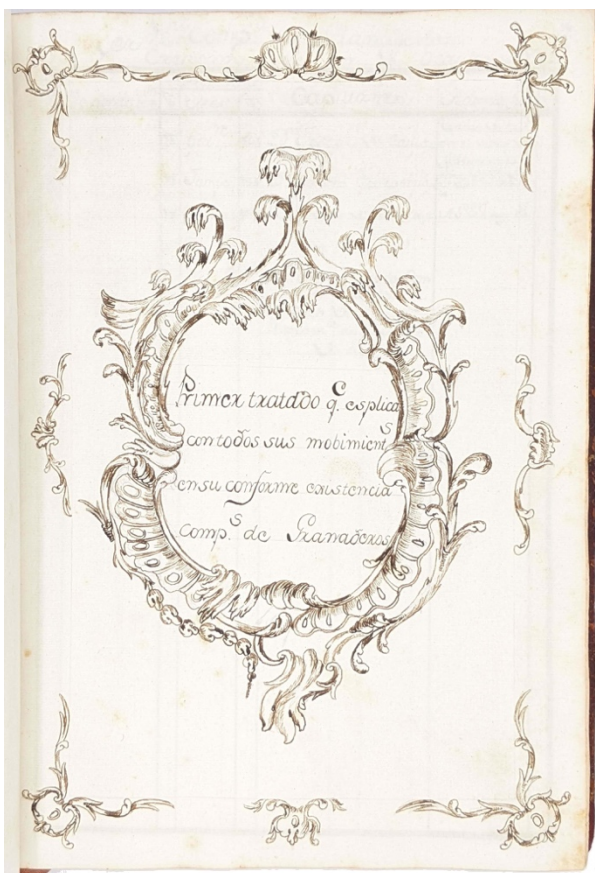 Primer tratado q.e esplica
con todos sus mobimient.s
en su conforme existencia
comp.s de Granaderos